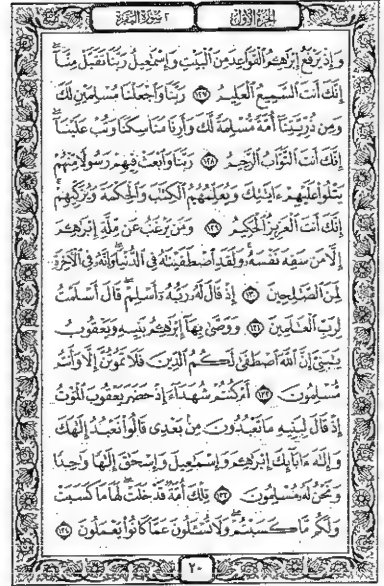 الجزء الأول
٢ سورة البقرة
وَإِذْ يَرْفَعُ إِبْرَٰهِـۧمُ ٱلْقَوَاعِدَ مِنَ ٱلْبَيْتِ وَإِسْمَٰعِيلُ رَبَّنَا تَقَبَّلْ مِنَّآ ۖ
إِنَّكَ أَنتَ ٱلسَّمِيعُ ٱلْعَلِيمُ ١٢٧ رَبَّنَا وَٱجْعَلْنَا مُسْلِمَيْنِ لَكَ
وَمِن ذُرِّيَّتِنَآ أُمَّةً مُّسْلِمَةً لَّكَ وَأَرِنَا مَنَاسِكَنَا وَتُبْ عَلَيْنَآ ۖ
إِنَّكَ أَنتَ ٱلتَّوَّابُ ٱلرَّحِيمُ ١٢٨ رَبَّنَا وَٱبْعَثْ فِيهِمْ رَسُولًا مِّنْهُمْ
يَتْلُوا۟ عَلَيْهِمْ ءَايَٰتِكَ وَيُعَلِّمُهُمُ ٱلْكِتَٰبَ وَٱلْحِكْمَةَ وَيُزَكِّيهِمْ ۚ
إِنَّكَ أَنتَ ٱلْعَزِيزُ ٱلْحَكِيمُ ١٢٩ وَمَن يَرْغَبُ عَن مِّلَّةِ إِبْرَٰهِـۧمَ
إِلَّا مَن سَفِهَ نَفْسَهُۥ ۚ وَلَقَدِ ٱصْطَفَيْنَٰهُ فِى ٱلدُّنْيَا ۖ وَإِنَّهُۥ فِى ٱلْءَاخِرَةِ
لَمِنَ ٱلصَّٰلِحِينَ ١٣٠ إِذْ قَالَ لَهُۥ رَبُّهُۥٓ أَسْلِمْ ۖ قَالَ أَسْلَمْتُ
لِرَبِّ ٱلْعَٰلَمِينَ ١٣١ وَوَصَّىٰ بِهَآ إِبْرَٰهِـۧمُ بَنِيهِ وَيَعْقُوبُ
يَٰبَنِىَّ إِنَّ ٱللَّهَ ٱصْطَفَىٰ لَكُمُ ٱلدِّينَ فَلَا تَمُوتُنَّ إِلَّا وَأَنتُم
مُّسْلِمُونَ ١٣٢ أَمْ كُنتُمْ شُهَدَآءَ إِذْ حَضَرَ يَعْقُوبَ ٱلْمَوْتُ
إِذْ قَالَ لِبَنِيهِ مَا تَعْبُدُونَ مِنۢ بَعْدِى قَالُوا۟ نَعْبُدُ إِلَٰهَكَ
وَإِلَٰهَ ءَابَآئِكَ إِبْرَٰهِـۧمَ وَإِسْمَٰعِيلَ وَإِسْحَٰقَ إِلَٰهًا وَٰحِدًا
وَنَحْنُ لَهُۥ مُسْلِمُونَ ١٣٣ تِلْكَ أُمَّةٌ قَدْ خَلَتْ ۖ لَهَا مَا كَسَبَتْ
وَلَكُم مَّا كَسَبْتُمْ ۖ وَلَا تُسْـَٔلُونَ عَمَّا كَانُوا۟ يَعْمَلُونَ ١٣٤
٢٠